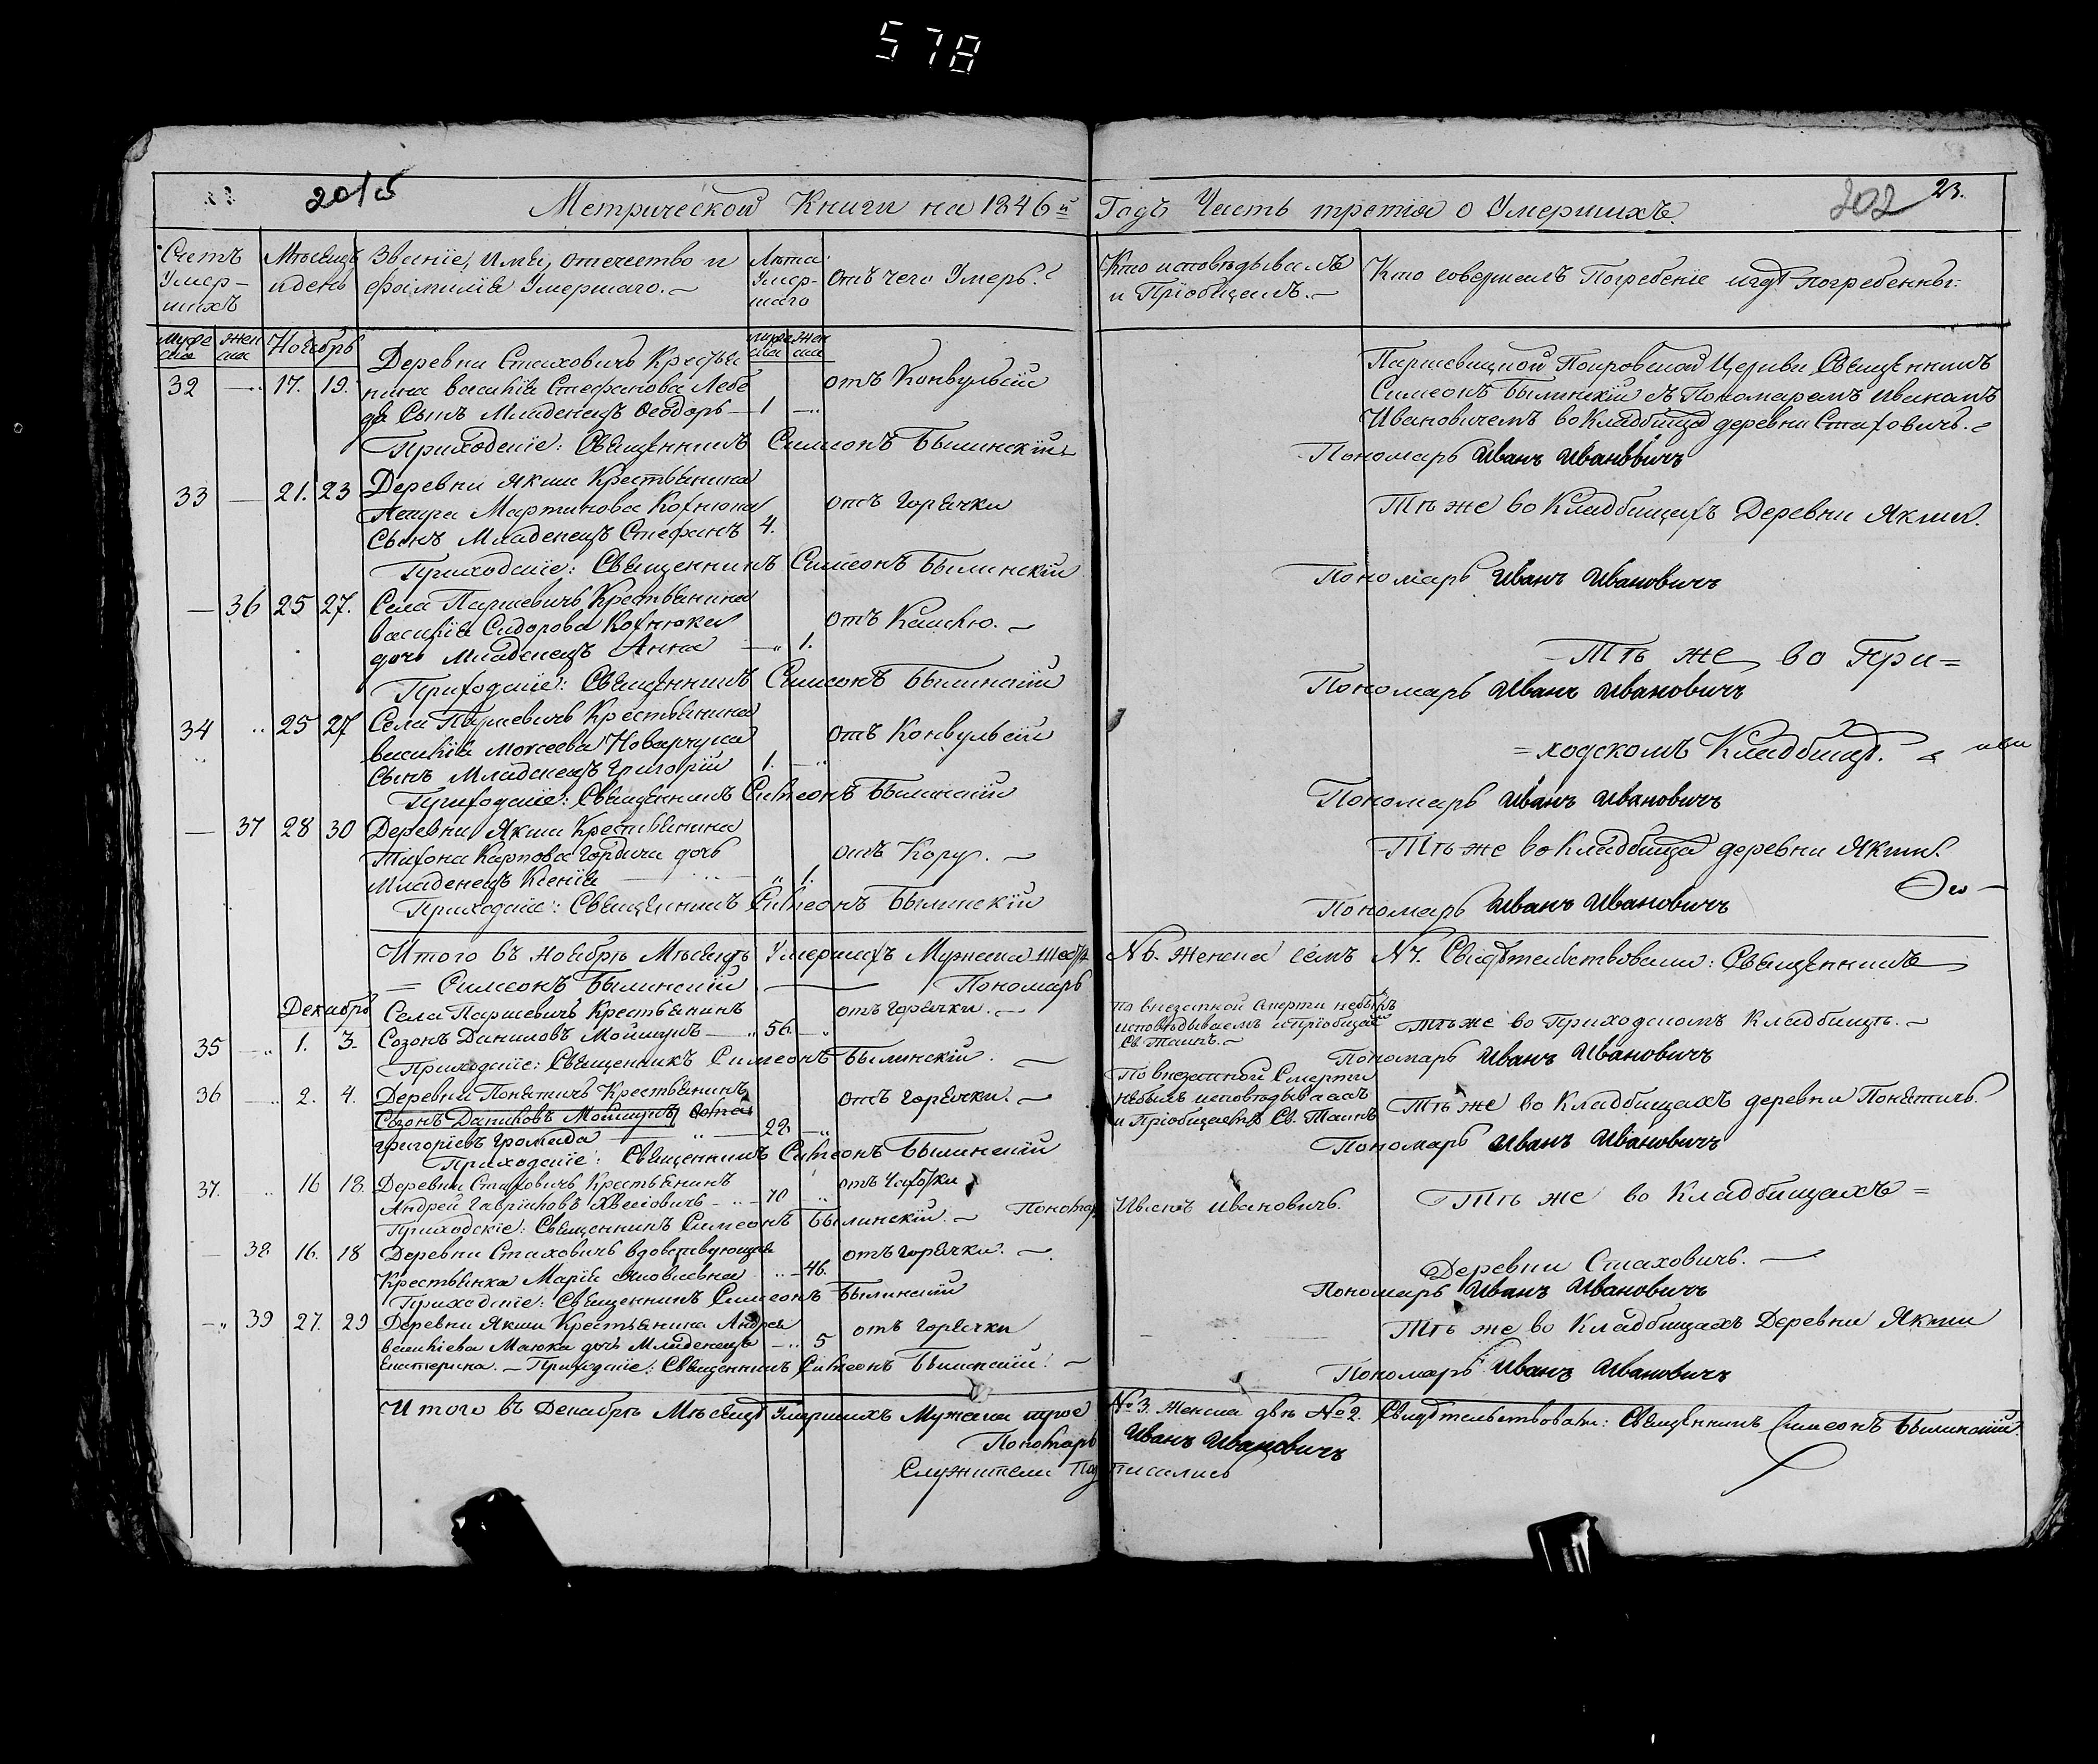 578
201 об
202
23.
Метрической Книги на 1846й Годъ Часть третія о Умершихъ.
Счетъ Умер-шихъ
Мѣсяцъ и день
Званіе, имя, отечество и фамилія Умершаго.
Лѣта Умер-шаго
Отъ чего Умеръ?
Кто исповѣдывалъ и Пріобщалъ.
Кто совершалъ Погребеніе и гдѣ погребенны:
Ноябрь
32 17. 19. Деревни Стаховичъ Крестья
нина Василія Стефанова Лебе
да Сынъ Младенецъ Ѳеодоръ 1
отъ Конвульсіи
Паршевицкой Покровской Церкви Священникъ
Симеонъ Былинскій съ Пономаремъ Иваномъ
Ивановичемъ во Кладбища деревни Стаховичъ.
Приходскіе: Священникъ Симеонъ Былинскій
Пономарь Иванъ Ивановичъ
33 21. 23 Деревни Якши Крестьянина
Петра Мартинова Кохнюка
Сынъ Младенецъ Стефанъ 4.
отъ Горячки
Тѣ же во Кладбищахъ Деревни Якши.
Приходскіе: Священникъ Симеонъ Былинскій
Пономарь Иванъ Ивановичъ
36 25 27. Села Паршевичъ Крестьянина
Василія Сидорова Кохнюка
дочь Младенецъ Анна 1.
отъ Кашлю.
Тѣ же во При=
Приходскіе: Священникъ Симеонъ Былинскій
Пономарь Иванъ Ивановичъ
34 25 27 Села Паршевичъ Крестьянина
Василія Моисеева
Сынъ Младенецъ Григорій 1.
отъ Конвульсіи
=ходскомъ Кладбищѣ.
Приходскіе: Священникъ Симеонъ Былинскій
Пономарь Иванъ Ивановичъ
37 28 30 Деревни Якши Крестьянина
Тихона Карпова Гордича дочь
Младенецъ Ксенія 1.
отъ Кору.
Тѣ же во Кладбища деревни Якши.
Приходскіе: Священникъ Симеонъ Былинскій
Пономарь Иванъ Ивановичъ
Итого въ Ноябрѣ Мѣсяцѣ Умершихъ Мужеска шесть №6. женска семъ №7. Свидѣтельствовали: Священникъ
= Симеонъ Былинскій Пономарь
Декабрь
35 1. 3. Села Паршевичъ Крестьянинъ
Созонъ Даниловъ Мойшукъ 56.
отъ горячки.
По внезапной Смерти небылъ
исповѣдываемъ и Пріобщаемъ
Св. Таинъ.
Тѣ же во Приходскомъ Кладбищѣ.
Приходскіе: Священникъ Симеонъ Былинскій.
Пономарь Иванъ Ивановичъ
36 2. 4. Деревни Понятичъ Крестьянинъ
Созонъ Даниловъ Мойшукъ Ѳома
Григоріевъ Громада 22.
отъ Горячки.
По внезапной Смерти
Небылъ исповѣдываемъ
и Пріобщаемъ Св. Таинъ
Тѣ же во Кладбищахъ деревни Понятичъ.
Приходскіе: Священникъ Симеонъ Былинскій
Пономарь Иванъ Ивановичъ
37. 16 18. Деревни Стаховичъ Крестьянинъ
Андрей Гавріиловъ 70
отъ Чахотки
Тѣ же во Кладбищахъ =
Приходскіе: Священникъ Симеонъ Былинскій. Пономарь Иванъ Ивановичъ.
38 16. 18 Деревни Стаховичъ вдовствующая
Крестьянка Марія Яковлевна 46.
отъ горячки.
Деревни Стаховичъ.
Приходскіе: Священникъ Симеонъ Былинскій
Пономарь Иванъ Ивановичъ
39 27. 29 Деревни Якши Крестьянина Андрея
Василіева Маюка дочь Младенецъ 5
Екатерина. Приходскіе: Священникъ Симеонъ Былинскій.
отъ Горячки
Тѣ же во Кладбищахъ Деревни Якши
Пономарь Иванъ Ивановичъ
Итого въ Декабрѣ Мѣсяцѣ Умершихъ Мужеска трое №3. Женска двѣ №2. Свидѣтельствовали: Священникъ Симеонъ Былинскій.
Пономарь Иванъ Ивановичъ
Служители Подписались